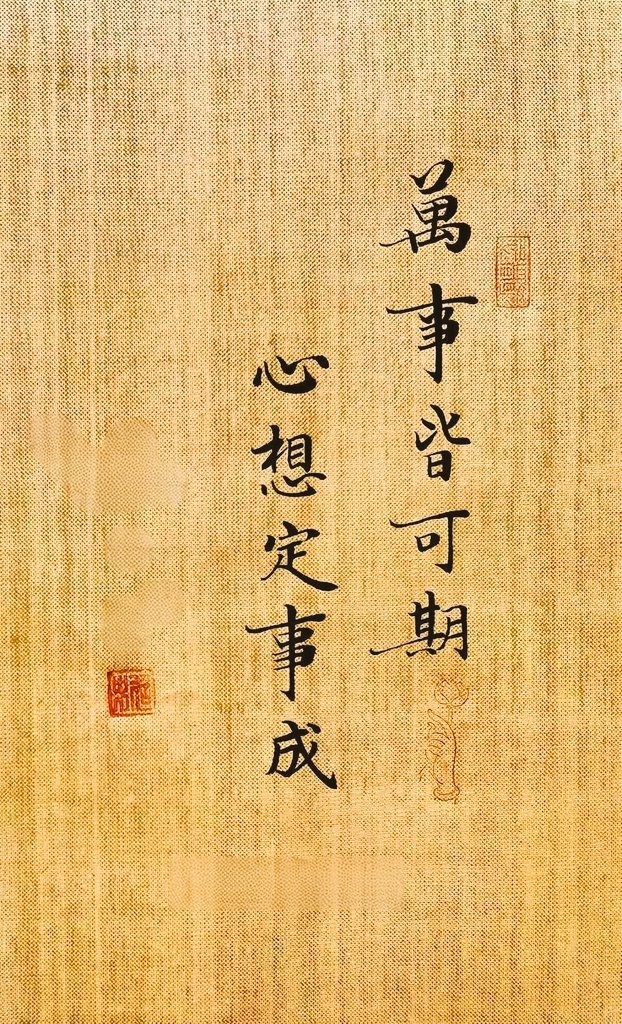 萬事皆可期
心想定事成